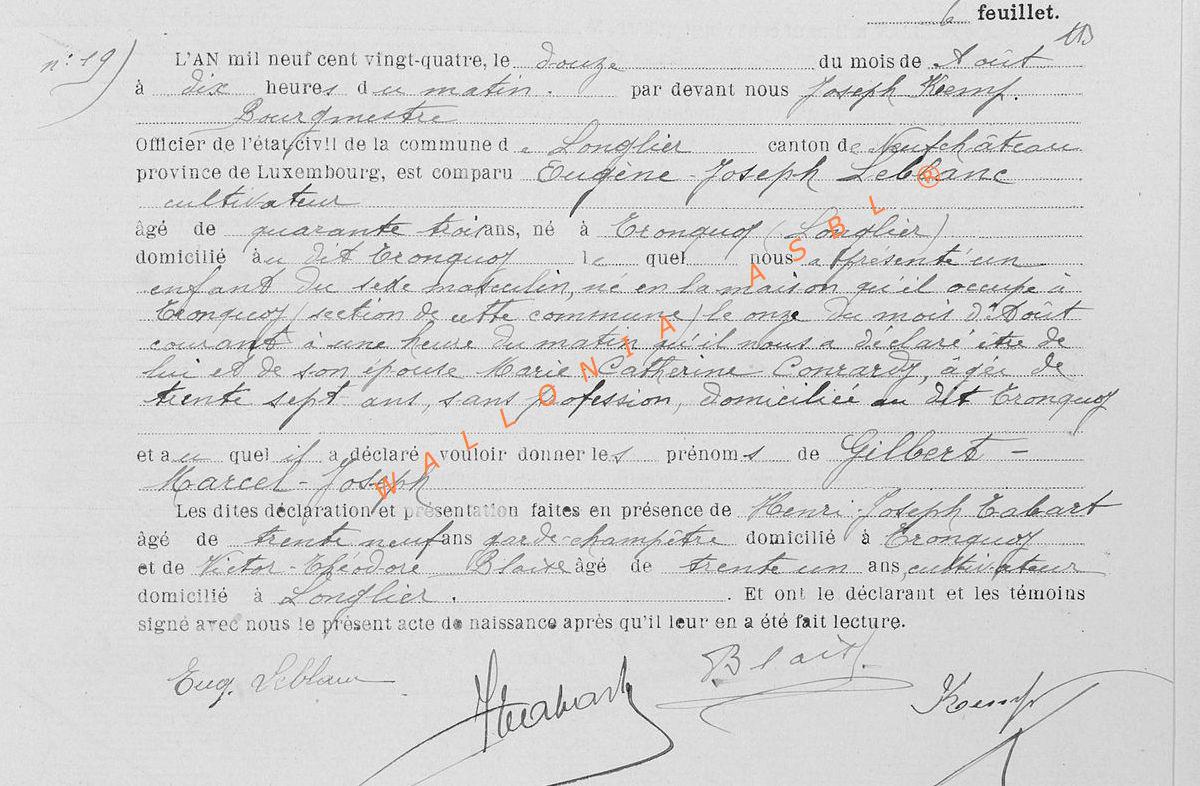 6 feuillet.
n: 19)
L'AN mil neuf cent vingt-quatre, le douze du mois de Août
à dix heures du matin. par devant nous Joseph Kemp.
Bourgmestre
Officier de l'état civil de la commune de Longlier canton de Neufchâteau
province de Luxembourg, est comparu Eugène-Joseph Leblanc
cultivateur
âgé de quarante trois ans, né à Tronquoy (Longlier)
domicilié au dit Tronquoy le quel nous a présenté un
enfant du sexe masculin, né en la maison qu'il occupe à
Tronquoy (section de cette commune) le onze du mois d'Août
courant à une heure du matin qu'il nous a déclaré être de
lui et de son épouse Marie Catherine Conrardy, âgée de
trente sept ans, sans profession, domiciliée au dit Tronquoy
et au quel il a déclaré vouloir donner les prénoms de Gilbert -
Marcel-Joseph
Les dites déclaration et présentation faites en présence de Henri-Joseph Tabart
âgé de trente neuf ans garde-champêtre domicilié à Tronquoy
et de Victor-Théodore Blaise âgé de trente un ans, cultivateur
domicilié à Longlier. Et ont le déclarant et les témoins
signé avec nous le présent acte de naissance après qu'il leur en a été fait lecture.
Eug. Leblanc
Kemp
WALLONIA ASBL ®